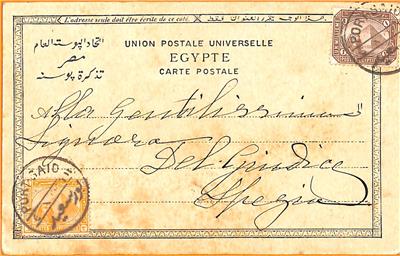 L'adresse seule doit être écrite de ce coté.
اتحاد البوستة العام
مصر
تذكرة بوسته
UNION POSTALE UNIVERSELLE
EGYPTE
CARTE POSTALE
PORT SAID
Alla Gentilissima
Signora
Del Giudice
Spezia
PORT SAID